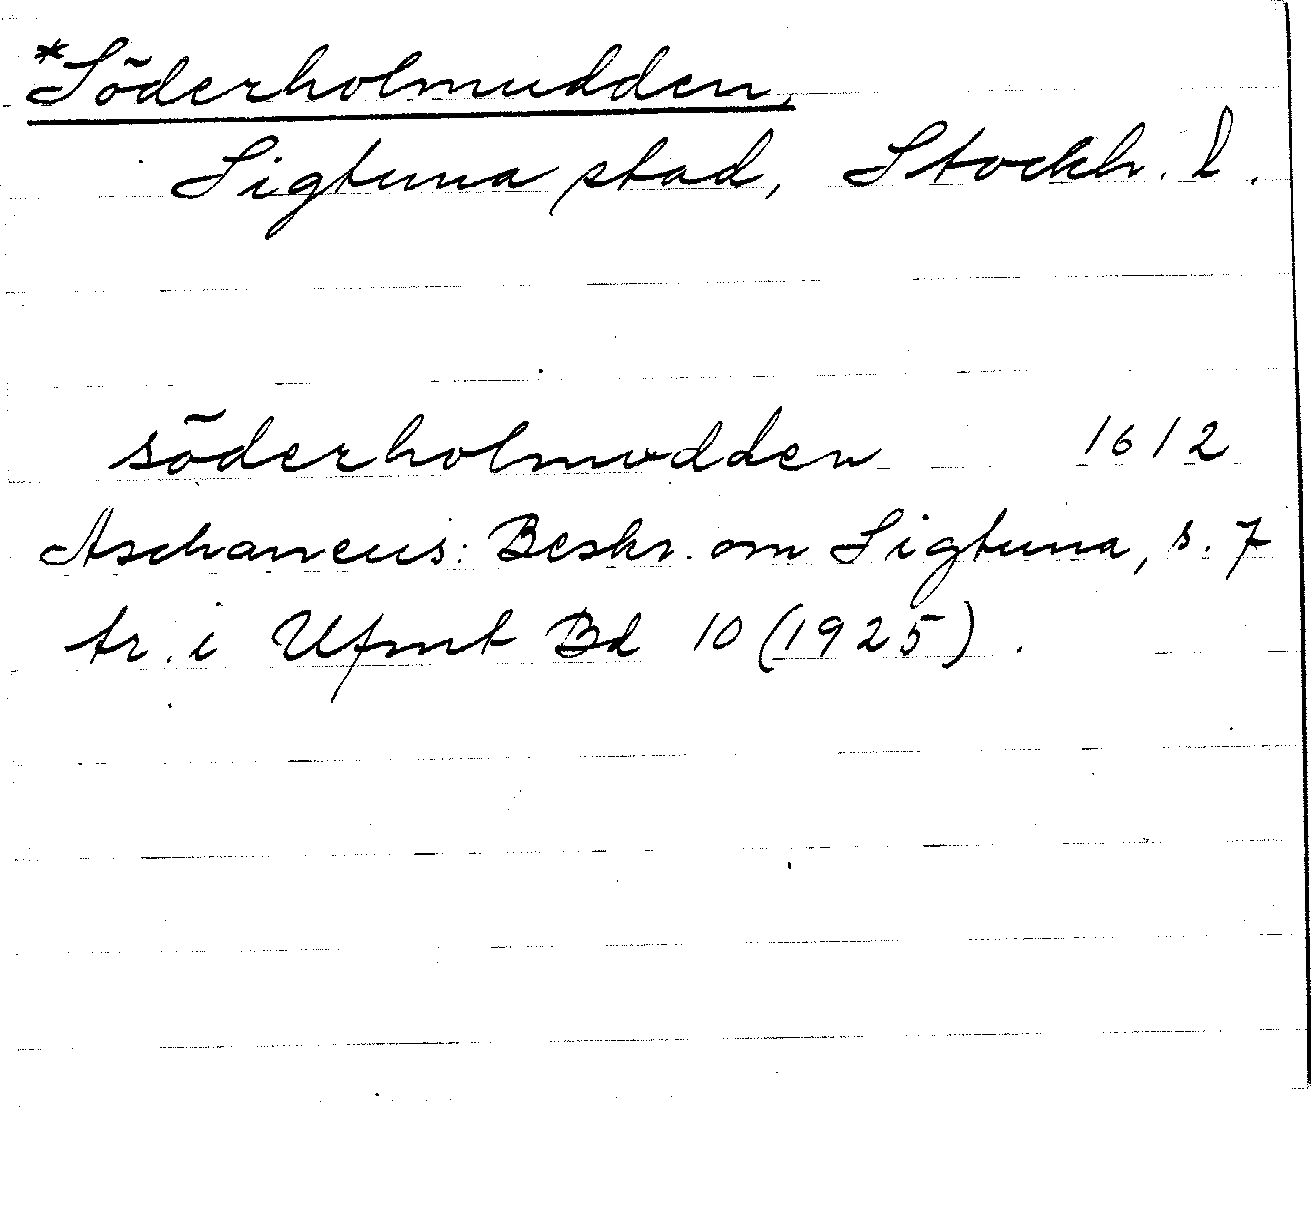 *Söderholmudden,
Sigtuna stad, Stockh. l.
söderholmudden 1612
Aschaneus: Beskr. om Sigtuna, s. 7
tr. i Ufmt Bd 10 (1925).